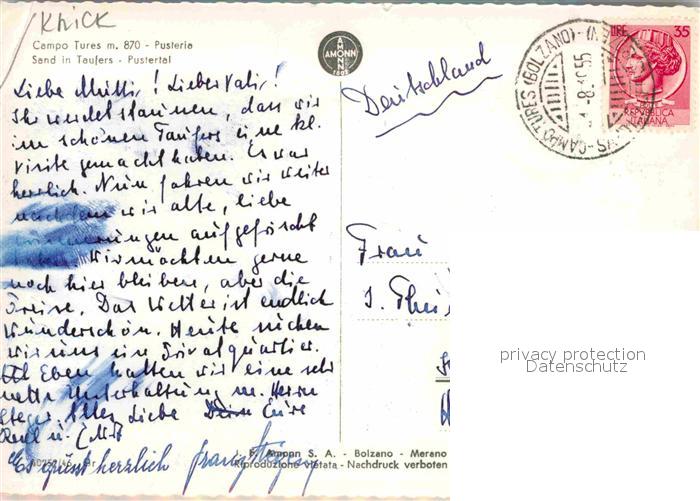 Knick
Campo Tures m. 870 - Pusteria
Sand in Taufers - Pustertal
Liebe Mutti! Lieber Vati!
Ihr werdet staunen, dass wir
im schönen Taufers eine kl.
Visite gemacht haben. Es war
herrlich. Nun fahren wir weiter
nachdem wir alte, liebe
Erinnerungen aufgefrischt
haben. Wir möchten gerne
noch hier bleiben, aber die
Preise. Das Wetter ist endlich
wunderschön. Heute
wir uns im Privatquartier.
Eben hatten wir eine sehr
nette Unterhaltung m. Herrn
Steger. Alles Liebe Eure
u.
Es grüsst herzlich Steger
AMONN
AMONN
1802
Deutschland
CAMPO TURES (BOLZANO)
-8.1955
LIRE 35
REPUBBLICA
ITALIANA
Frau
privacy protection
Datenschutz
F. Amonn S. A. - Bolzano - Merano
Riproduzione vietata - Nachdruck verboten